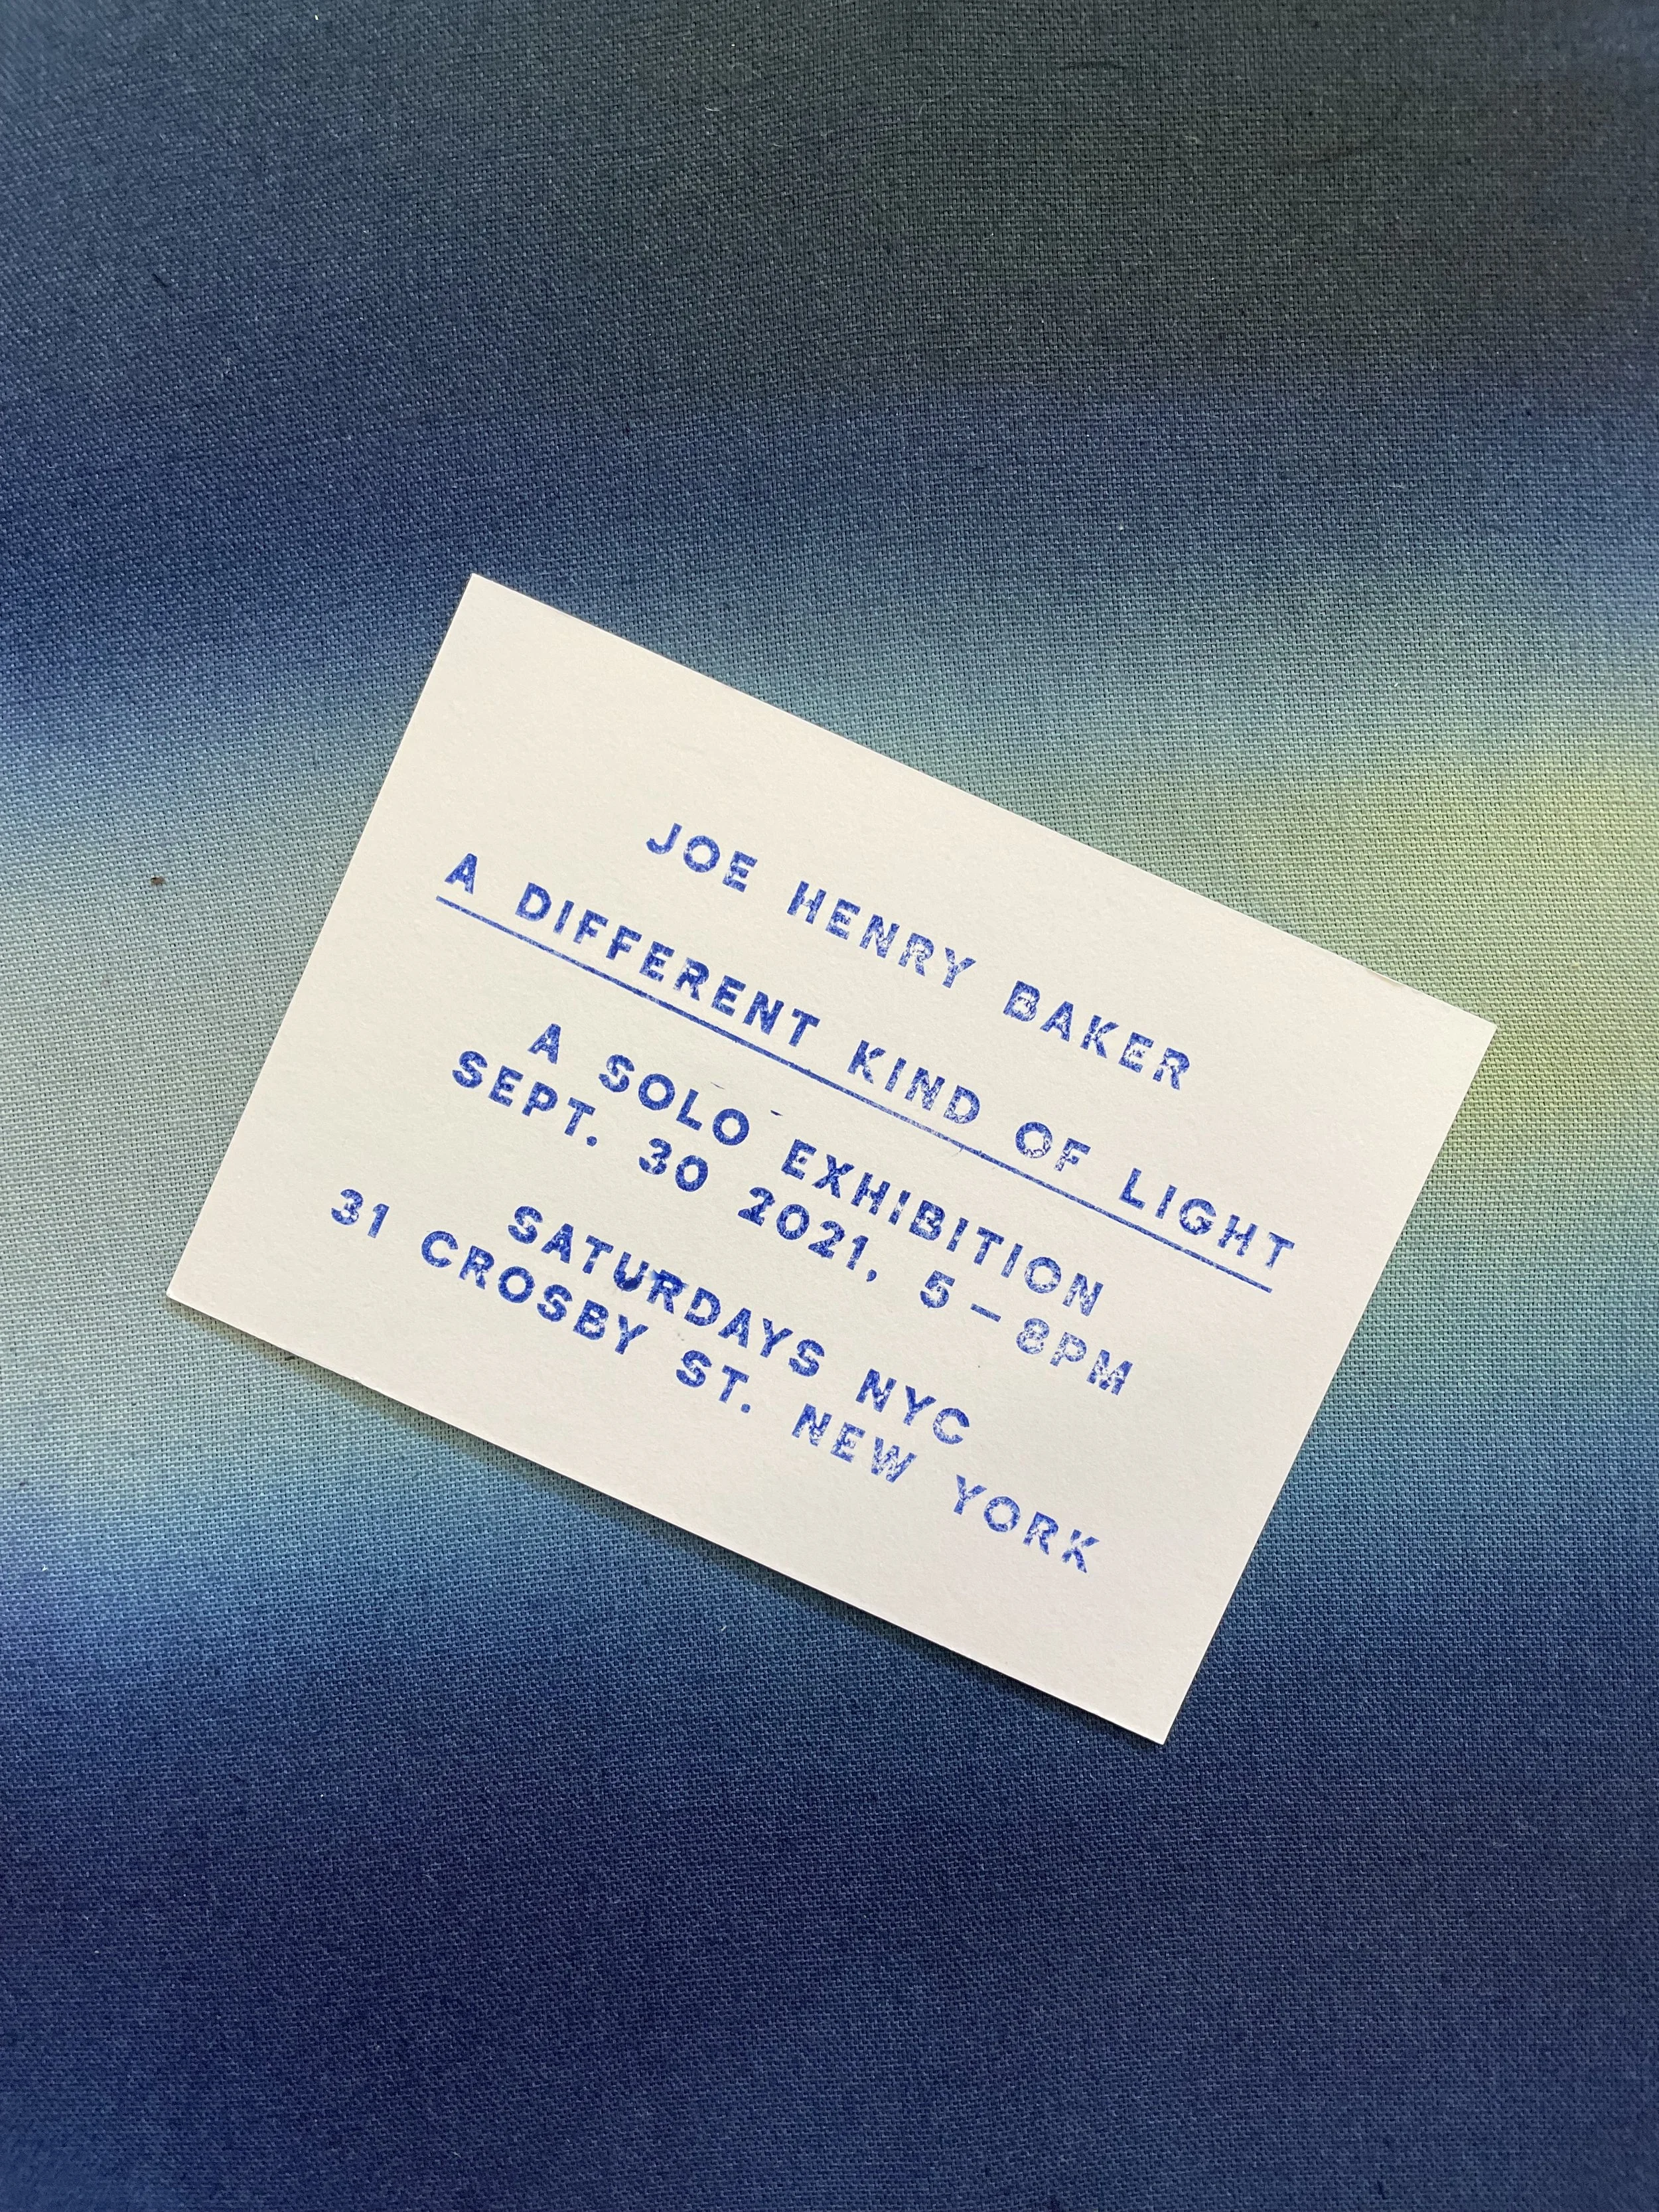 JOE HENRY BAKER
A DIFFERENT KIND OF LIGHT
A SOLO EXHIBITION
SEPT. 30 2021, 5 – 8PM
SATURDAYS NYC
31 CROSBY ST. NEW YORK